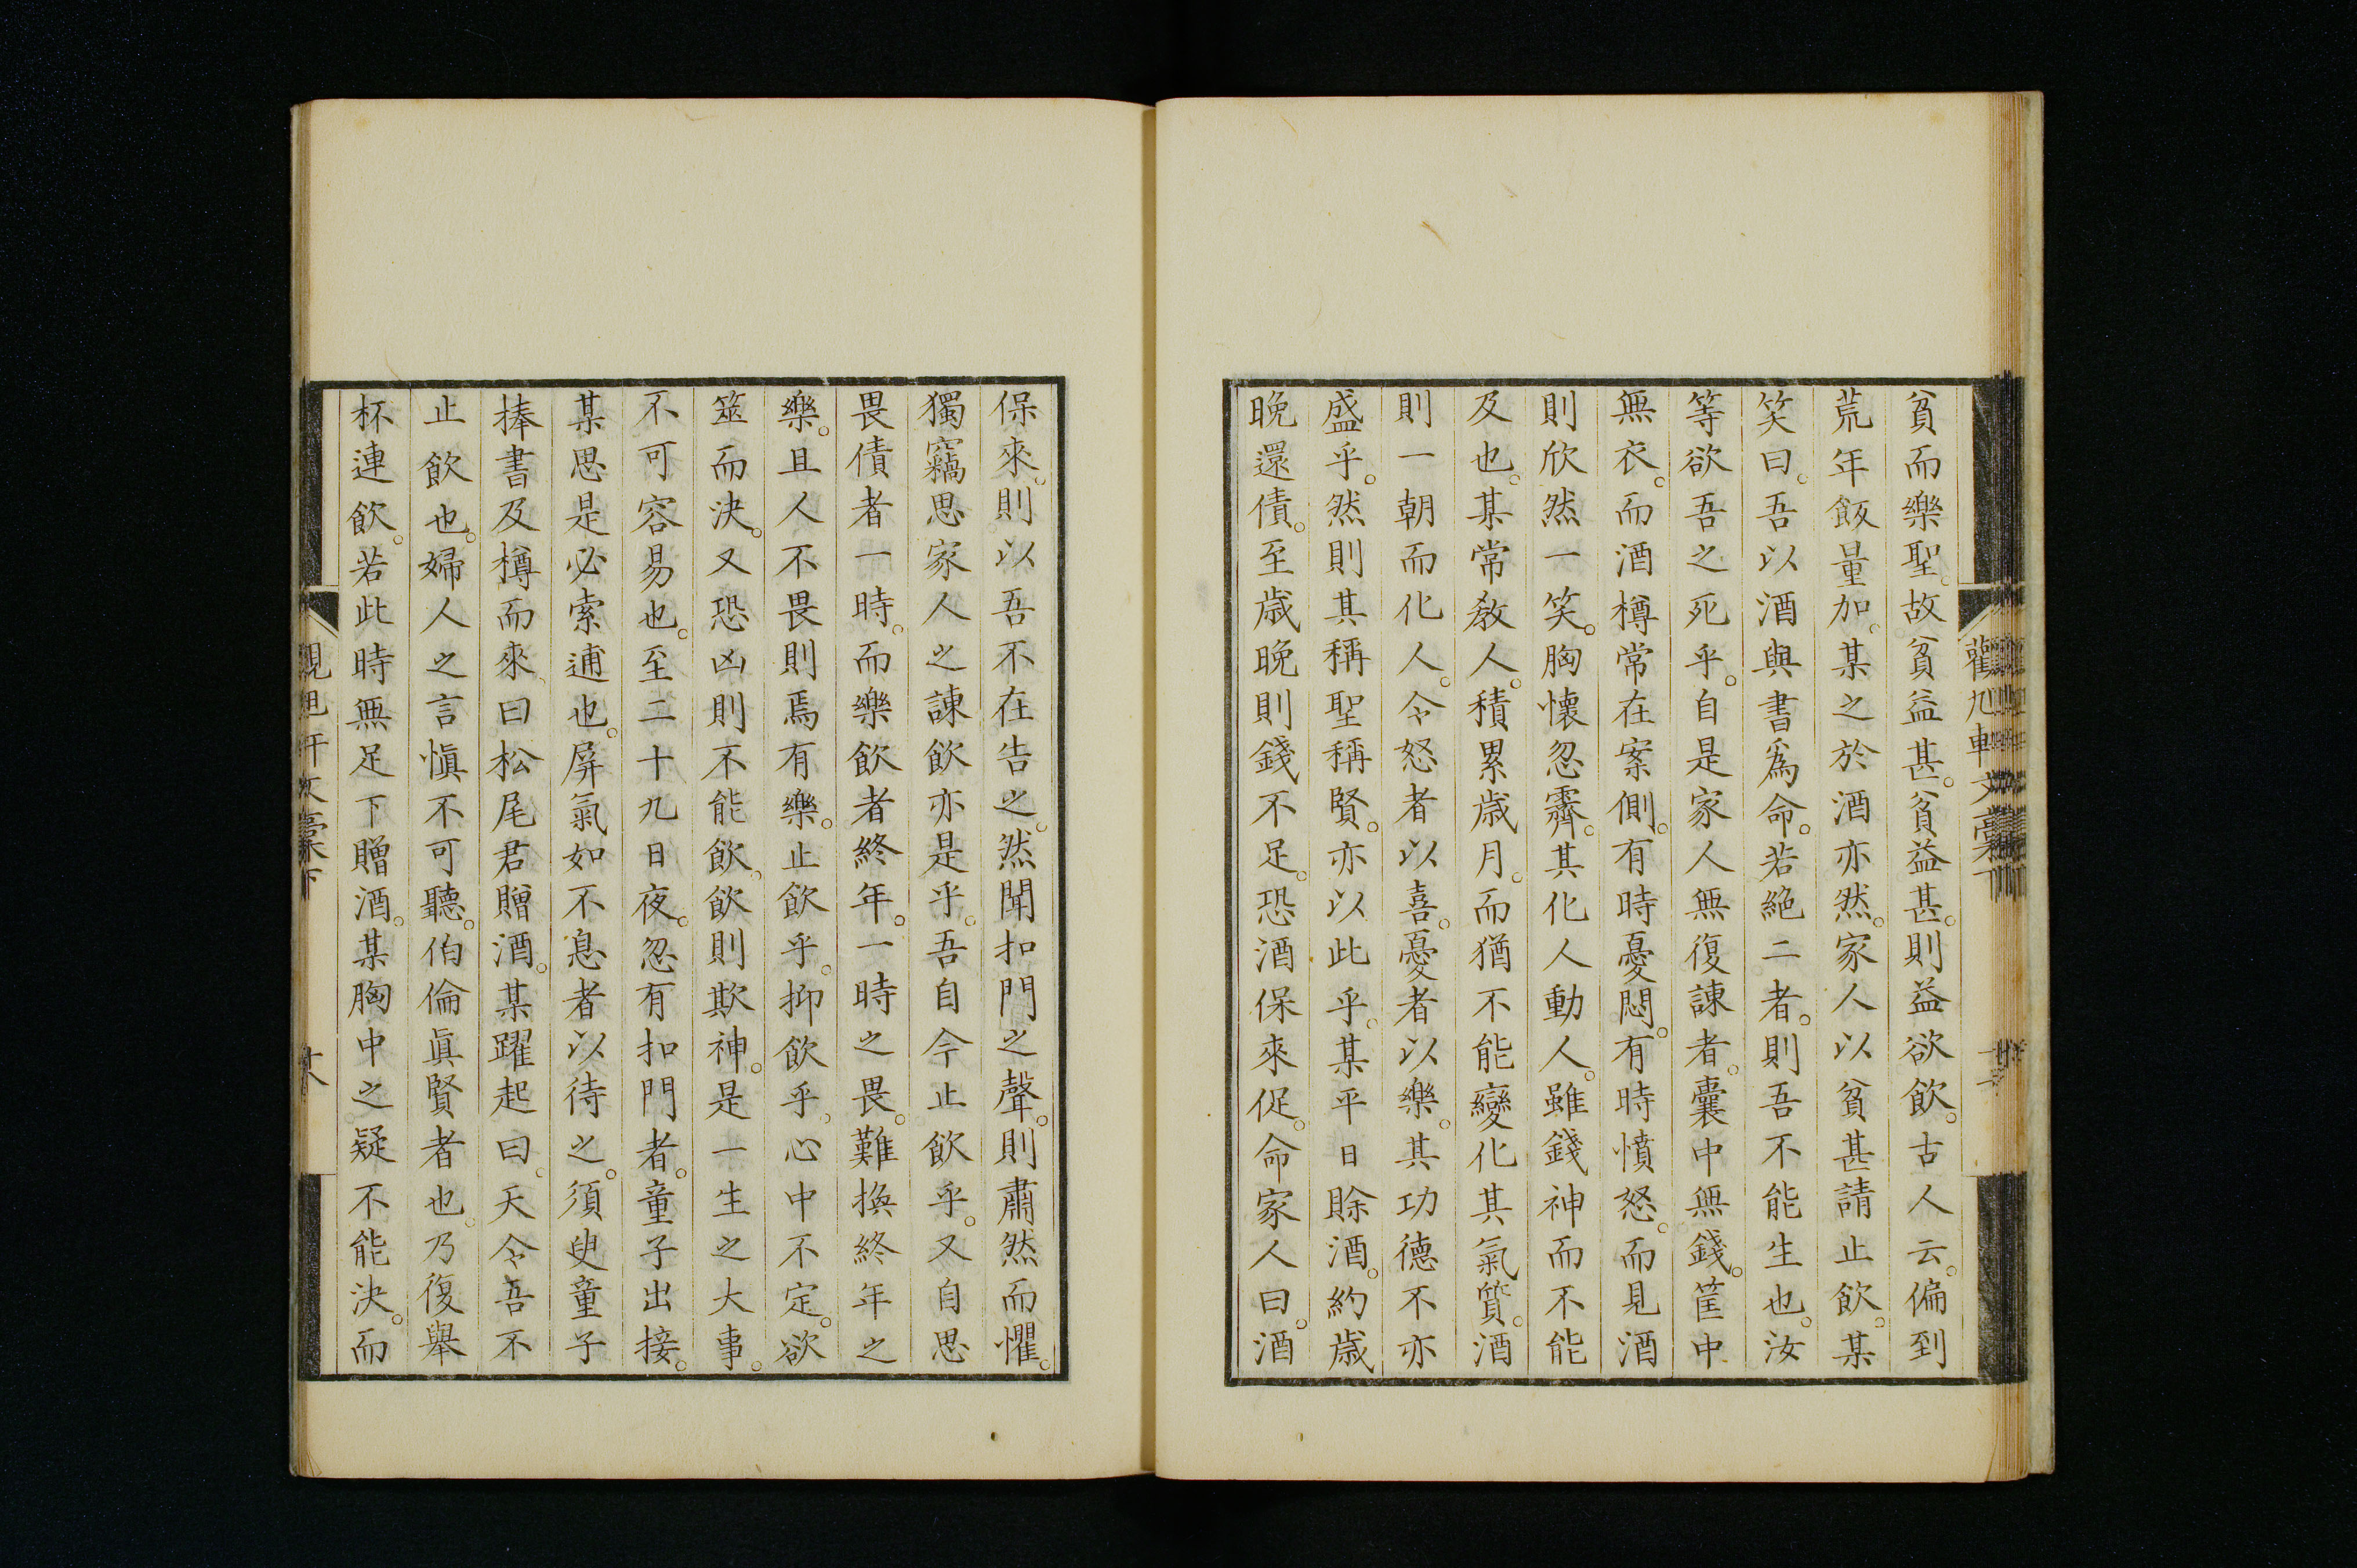 貧而樂聖。故貧益甚。貧益甚。則益欲飲。古人云。偏到
荒年飯量加。某之於酒亦然。家人以貧甚請止飲。某
笑曰。吾以酒與書爲命。若絶二者。則吾不能生也。汝
等欲吾之死乎。自是家人無復諫者。囊中無錢。筐中
無衣。而酒樽常在案側。有時憂悶。有時憤怒。而見酒
則欣然一笑。胸懷忽霽。其化人動人。雖錢神而不能
及也。某常敎人。積累歳月。而猶不能變化其氣質。酒
則一朝而化人。令怒者以喜。憂者以樂。其功德不亦
盛乎。然則其稱聖稱賢。亦以此乎。某平日賖酒。約歳
晩還債。至歳晩則錢不足。恐酒保來促。命家人曰。酒
保來。則以吾不在告之。然聞扣門之聲。則肅然而懼。
獨竊思家人之諫飲亦是乎。吾自今止飲乎。又自思
畏債者一時。而樂飲者終年。一時之畏。難換終年之
樂。且人不畏則焉有樂。止飲乎。抑飲乎。心中不定。欲
筮而決。又恐凶則不能飲、飲則欺神。是一生之大事。
不可容易也。至二十九日夜。忽有扣門者。童子出接。
某思是必索逋也。屏氣如不息者以待之。須臾童子
捧書及樽而來、曰松尾君贈酒。某躍起曰。天令吾不
止飲也。婦人之言愼不可聽。伯倫眞賢者也。乃復擧
杯連飲。若此時無足下贈酒。某胸中之疑不能決。而